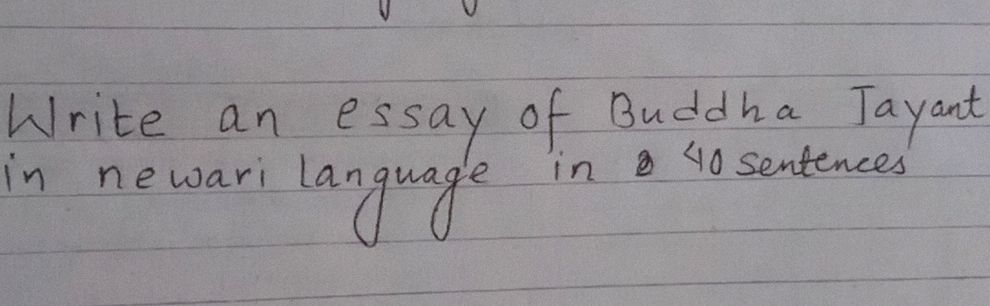 Write an essay of Buddha Jayant
in newari language in 40 sentences